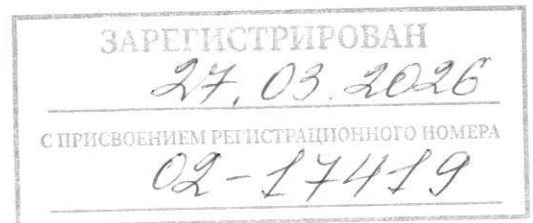 ЗАРЕГИСТРИРОВАН
27.03.2026
С ПРИСВОЕНИЕМ РЕГИСТРАЦИОННОГО НОМЕРА
02-17419